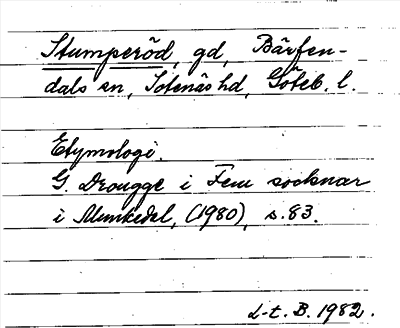 Stumperöd, gd, Bärfen-
dals sn, Sotenäs hd, Göteb. l.
Etymologi.
G. Drougge i Fem socknar
i Munkedal, (1980), s. 83.
L-t. B. 1982.